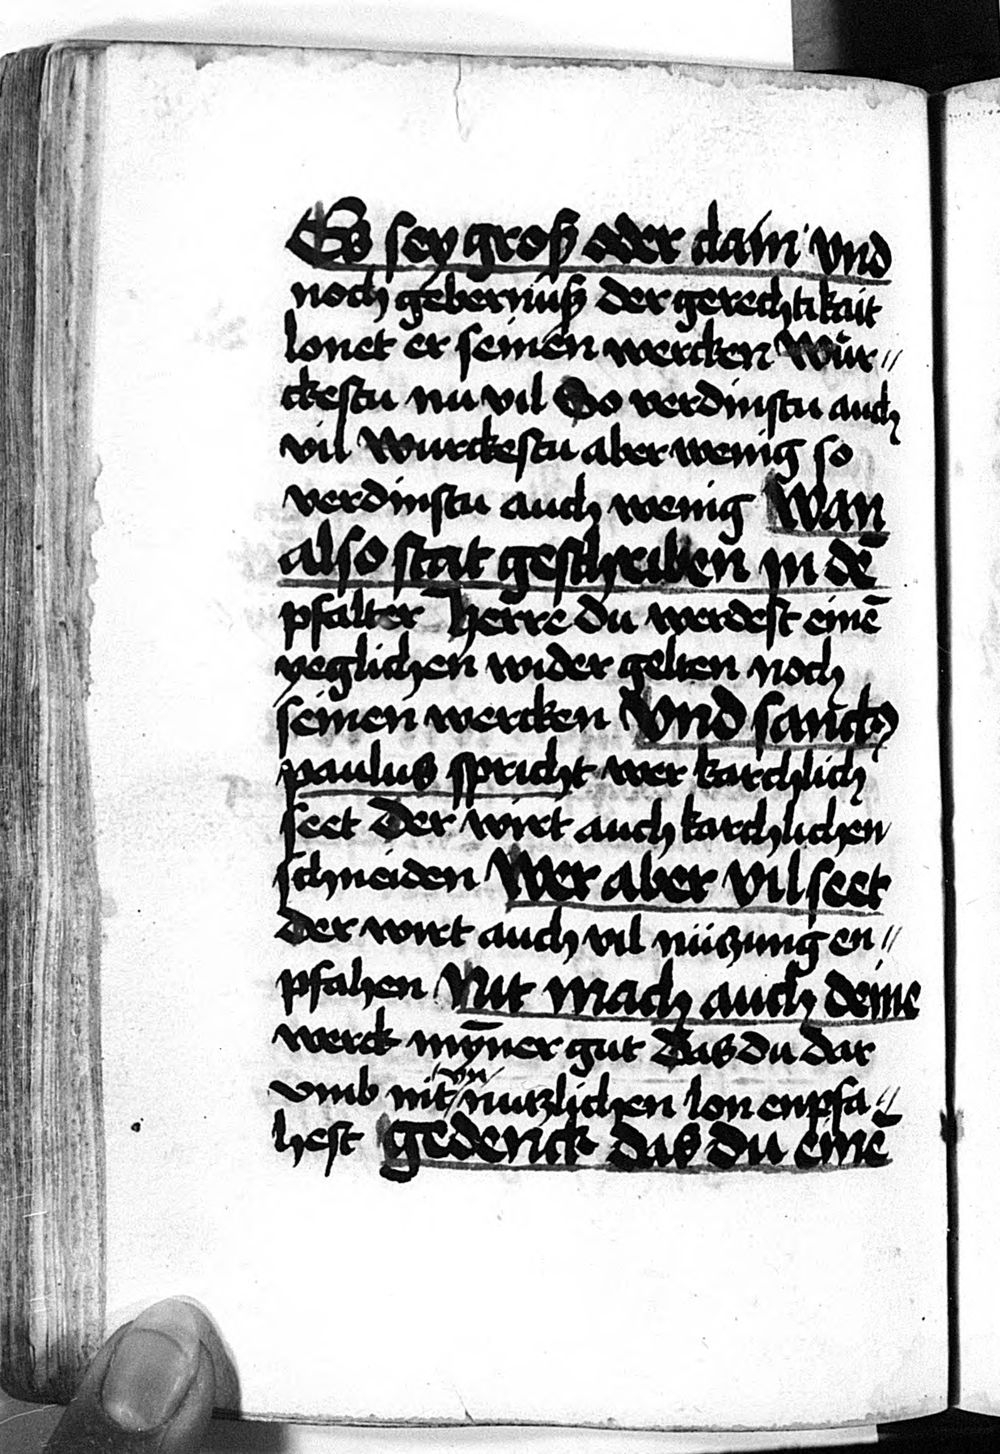 Es sey groß oder clain vnd
noch gebernuß der gerechtikait
lonet er seinen wercken Wür⸗
ckestu nu vil So verdinstu auch
vil Wurckestu aber wenig so
verdinstu auch wenig Wan
also stat geschriben in dē
psalter Herre du werdest einē
yeglichen wider gelten noch
seinen wercken Vnd sanct
paulus spricht wer karchlich
seet Der wirt auch karchlichen
schneiden Wer aber vil seet
Der wirt auch vil nützung en⸗
pfahen Nit mach auch deine
werck myn̄er gut Das du dar
vmb nit vn nutzlichen lon enpfa⸗
hest gedenck das du einē